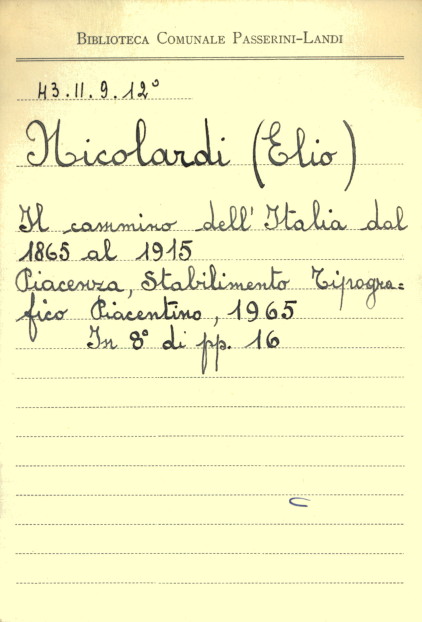 BIBLIOTECA COMUNALE PASSERINI-LANDI
43.II.9.12°
Nicolardi (Elio)
Il cammino dell'Italia dal
1865 al 1915
Piacenza, Stabilimento Tipogra=
fico Piacentino, 1965
In 8° di pp. 16